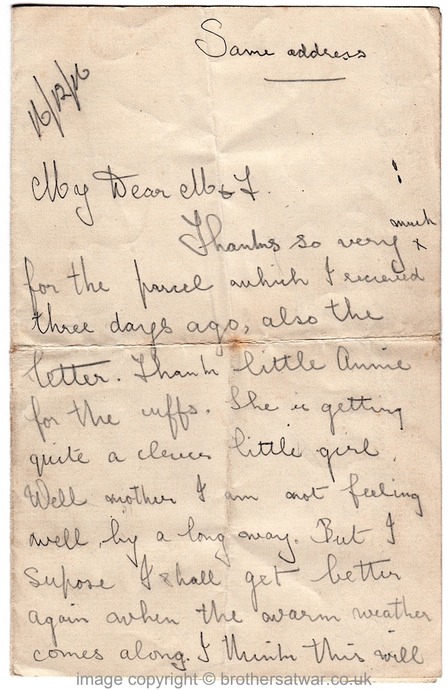 Same address
16/12/16
My Dear M & F.
Thanks so very much
for the parcel which I recieved
three days ago, also the
letter. Thank little Annie
for the cuffs. She is getting
quite a clever little girl.
Well mother I am not feeling
well, by a long way. But I
supose I shall get better
again when the warm weather
comes along. I think this will
image copyright © brothersatwar.co.uk